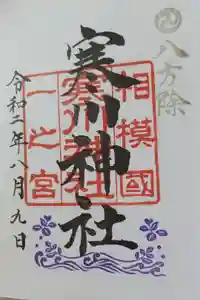 八方除
相模國
寒川神社
一之宮
寒川神社
令和二年八月九日